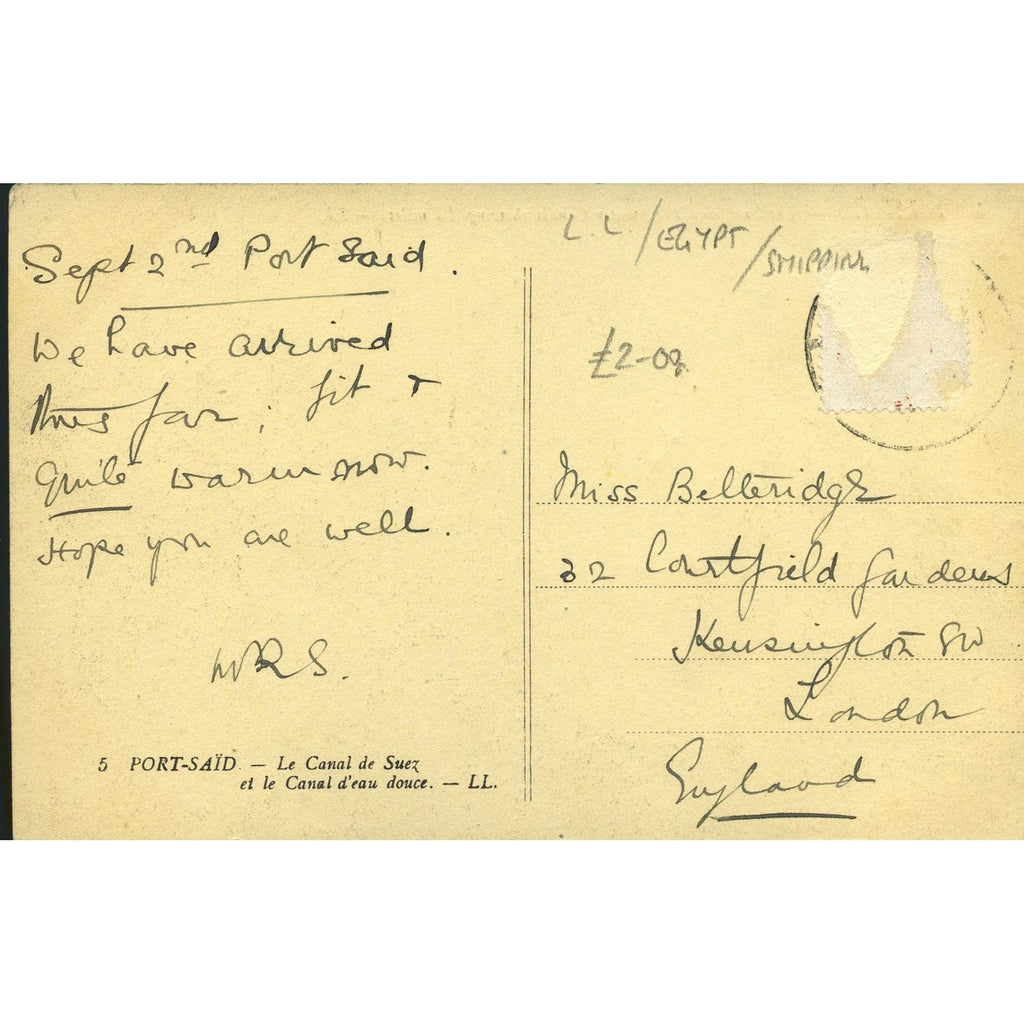 Sept 2nd Port Said.
We have arrived
thus far; fit &
quite warm now.
Hope you are well.
WRS.
5 PORT-SAÏD. — Le Canal de Suez
et le Canal d'eau douce. — LL.
LL/EGYPT/SHIPPING
£2-00
Miss Betteridge
32 Courtfield Gardens
Kensington SW
London
England